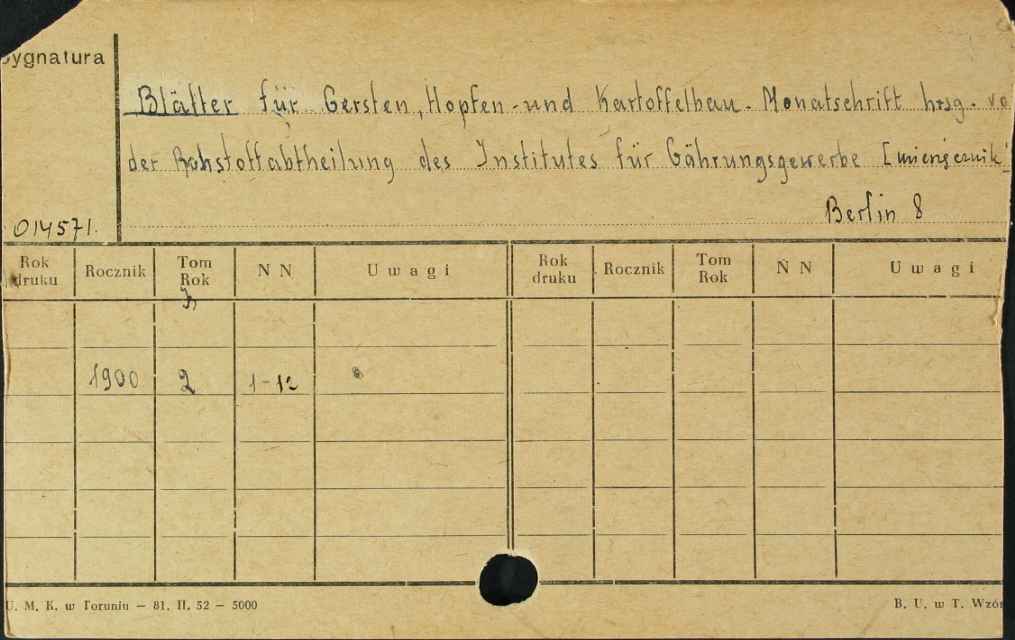 Sygnatura
Blätter für Gersten, Hopfen- und Kartoffelbau. Monatschrift hrsg. vo
der Rohstoffabtheilung des Institutes für Gährungsgewerbe [miesięcznik]
Berlin 8
014571.
Rok druku Rocznik Tom Rok N N Uwagi Rok druku Rocznik Tom Rok N N Uwagi
1900 2 1-12
U. M. K. w Toruniu — 81. II. 52 — 5000 B. U. w T. Wzór